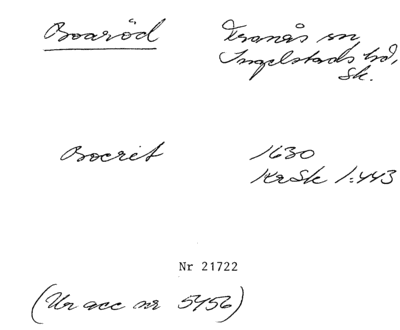 Boaröd Tranås sn
Ingelstads hd,
Sk.
Bocrit 1630
KrSk 1:443
Nr 21722
(Ur acc nr 5456)